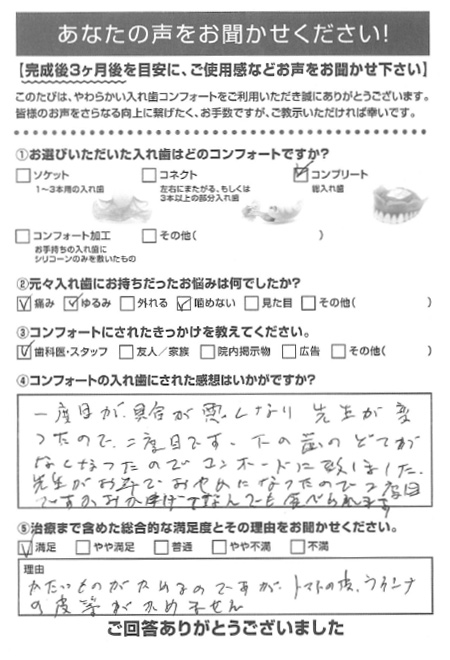 あなたの声をお聞かせください!
【完成後3ヶ月後を目安に、ご使用感などお声をお聞かせ下さい】
このたびは、やわらかい入れ歯コンフォートをご利用いただき誠にありがとうございます。
皆様のお声をさらなる向上に繋げたく、お手数ですが、ご教示いただければ幸いです。
①お選びいただいた入れ歯はどのコンフォートですか?
ソケット コネクト コンプリート
1〜3本用の入れ歯 左右にまたがる、もしくは 総入れ歯
3本以上の部分入れ歯
コンフォート加工 その他( )
お手持ちの入れ歯に
シリコーンのみを敷いたもの
②元々入れ歯にお持ちだったお悩みは何でしたか?
痛み ゆるみ 外れる 噛めない 見た目 その他( )
③コンフォートにされたきっかけを教えてください。
歯科医・スタッフ 友人/家族 院内掲示物 広告 その他( )
④コンフォートの入れ歯にされた感想はいかがですか?
一度目が、具合が悪くなり 先生が変
ったので、二度目です、下の歯のどてが
なくなったのでコンホードに致しました、
先生がお年でおやめになったので2度目
ですがおかげでなんでも食べられます
⑤治療まで含めた総合的な満足度とその理由をお聞かせください。
満足 やや満足 普通 やや不満 不満
理由
かたいものがかめるのですが、トマトの皮、ウインナ
の皮等がかめません
ご回答ありがとうございました